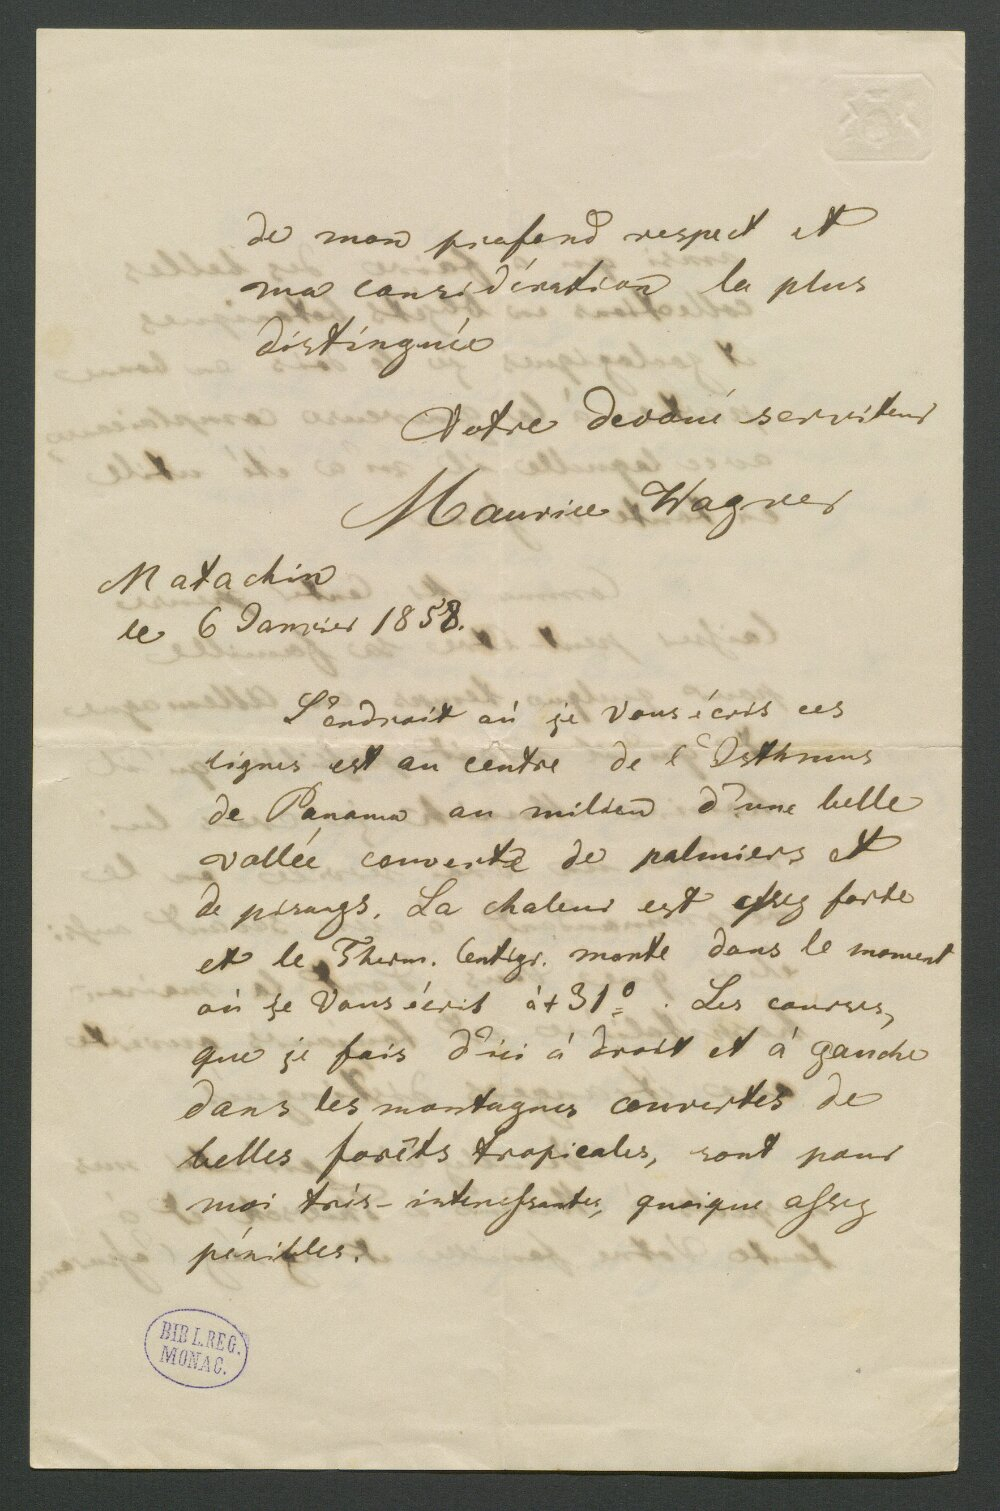 de mon profond respect et
ma considération la plus
distinguée
Votre devoué serviteur
Maurice Wagner
Matachin
le 6 Janvier 1858.
L'endroit où je Vous écris ces
lignes est au centre de l'Isthmus
de Panama au milieu d'une belle
vallée couverte de palmiers et
de pisangs. La chaleur est assez forte
et le Therm. Centigr. monte dans le moment
où je Vous écris à + 31°. Les courses,
que je fais d'ici à droit et à gauche
dans les montagnes couvertes de
belles forêts tropicales, sont pour
moi très-interessantes, quoique assez
pénibles.
BIBL. REG.
MONAC.